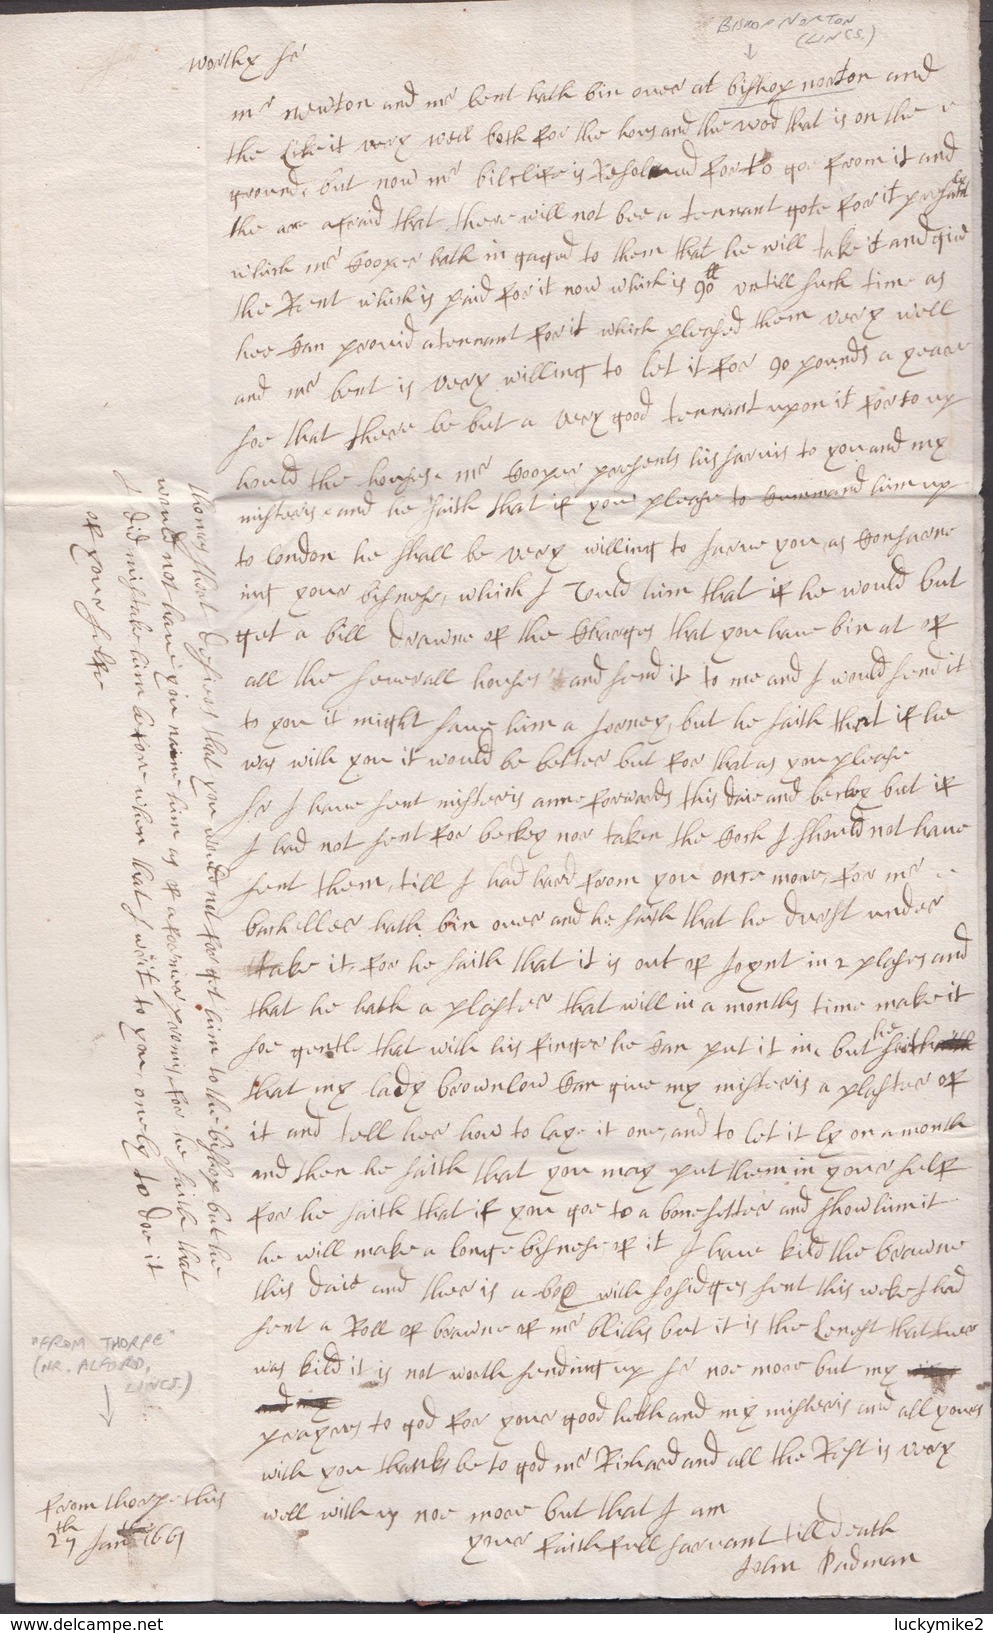 BISHOP NORTON
(LINCS.)
worthy sr
mr newton and mr bent hath bin over at bishop norton and
the Like it very well both for the hows and the wod that is on the
ground, but now mr bilclife is Resolved for to goe from it and
the are afraid that there will not bee a tennant gote for it presantly
which mr Cooper hath in gaged to them that he will take it and give
the Rent which is paid for it now which is 90ll untill such time as
hee Can provid a tennant for it which plesed them very well
and mr bent is very willing to let it for 90 pounds a yeare
soe that there be but a very good tennant upon it for to up
hould the howses. mr Cooper presents his sarvis to you and my
misteris and he saith that if you please to Command him up
to london he shall be very willing to sarve you as Consarne
ing your bisnese, which I Tould him that if he would but
get a bill drawne of the Charges that you have bin at of
all the severall howses and send it to me and I would send it
to you it might save him a Jorney, but he saith that if he
was with you it would be better but for that as you please
Sr I have sent misteris anne forwards this daie and beckey but if
I had not sent for beckey nor taken the Coch I should not have
sent them, till I had hard from you once more, for mr
barkeller hath bin over and he saith that he durst under
take it, for he saith that it is out of Joynt in 2 plases and
that he hath a plaster that will in a months time make it
soe gentle that with his finger he Can put it in, but he saith
that my lady brownlow Can give my misteris a plaster of
it and tell her how to laye it one, and to let it ly on a month
and then he saith that you may put them in your self
for he saith that if you goe to a bone setter and show him it
he will make a longe bisnese of it I have kild the brawne
this daie and ther is a box with sosidges sent this weke I had
sent a Roll of brawne of mr bliths but it is the Lenest that ever
was kild it is not worth sending up sr noe more but my
prayers to god for your good helth and my misteris and all yours
with you thanks be to god mr Richard and all the Rest is very
well with us noe more but that I am
your faithfull sarvant till death
John Padman
from thorpe this
27th Jan 1661
thomas that desiers that you would not for get him to the bishop but he
would not have you name him as of a former promis for he saith that
I did mistake him before when that I writ to you, onely to doe it
of your selfe
"FROM THORPE"
(NR. ALFORD,
LINCS.)
luckymike2